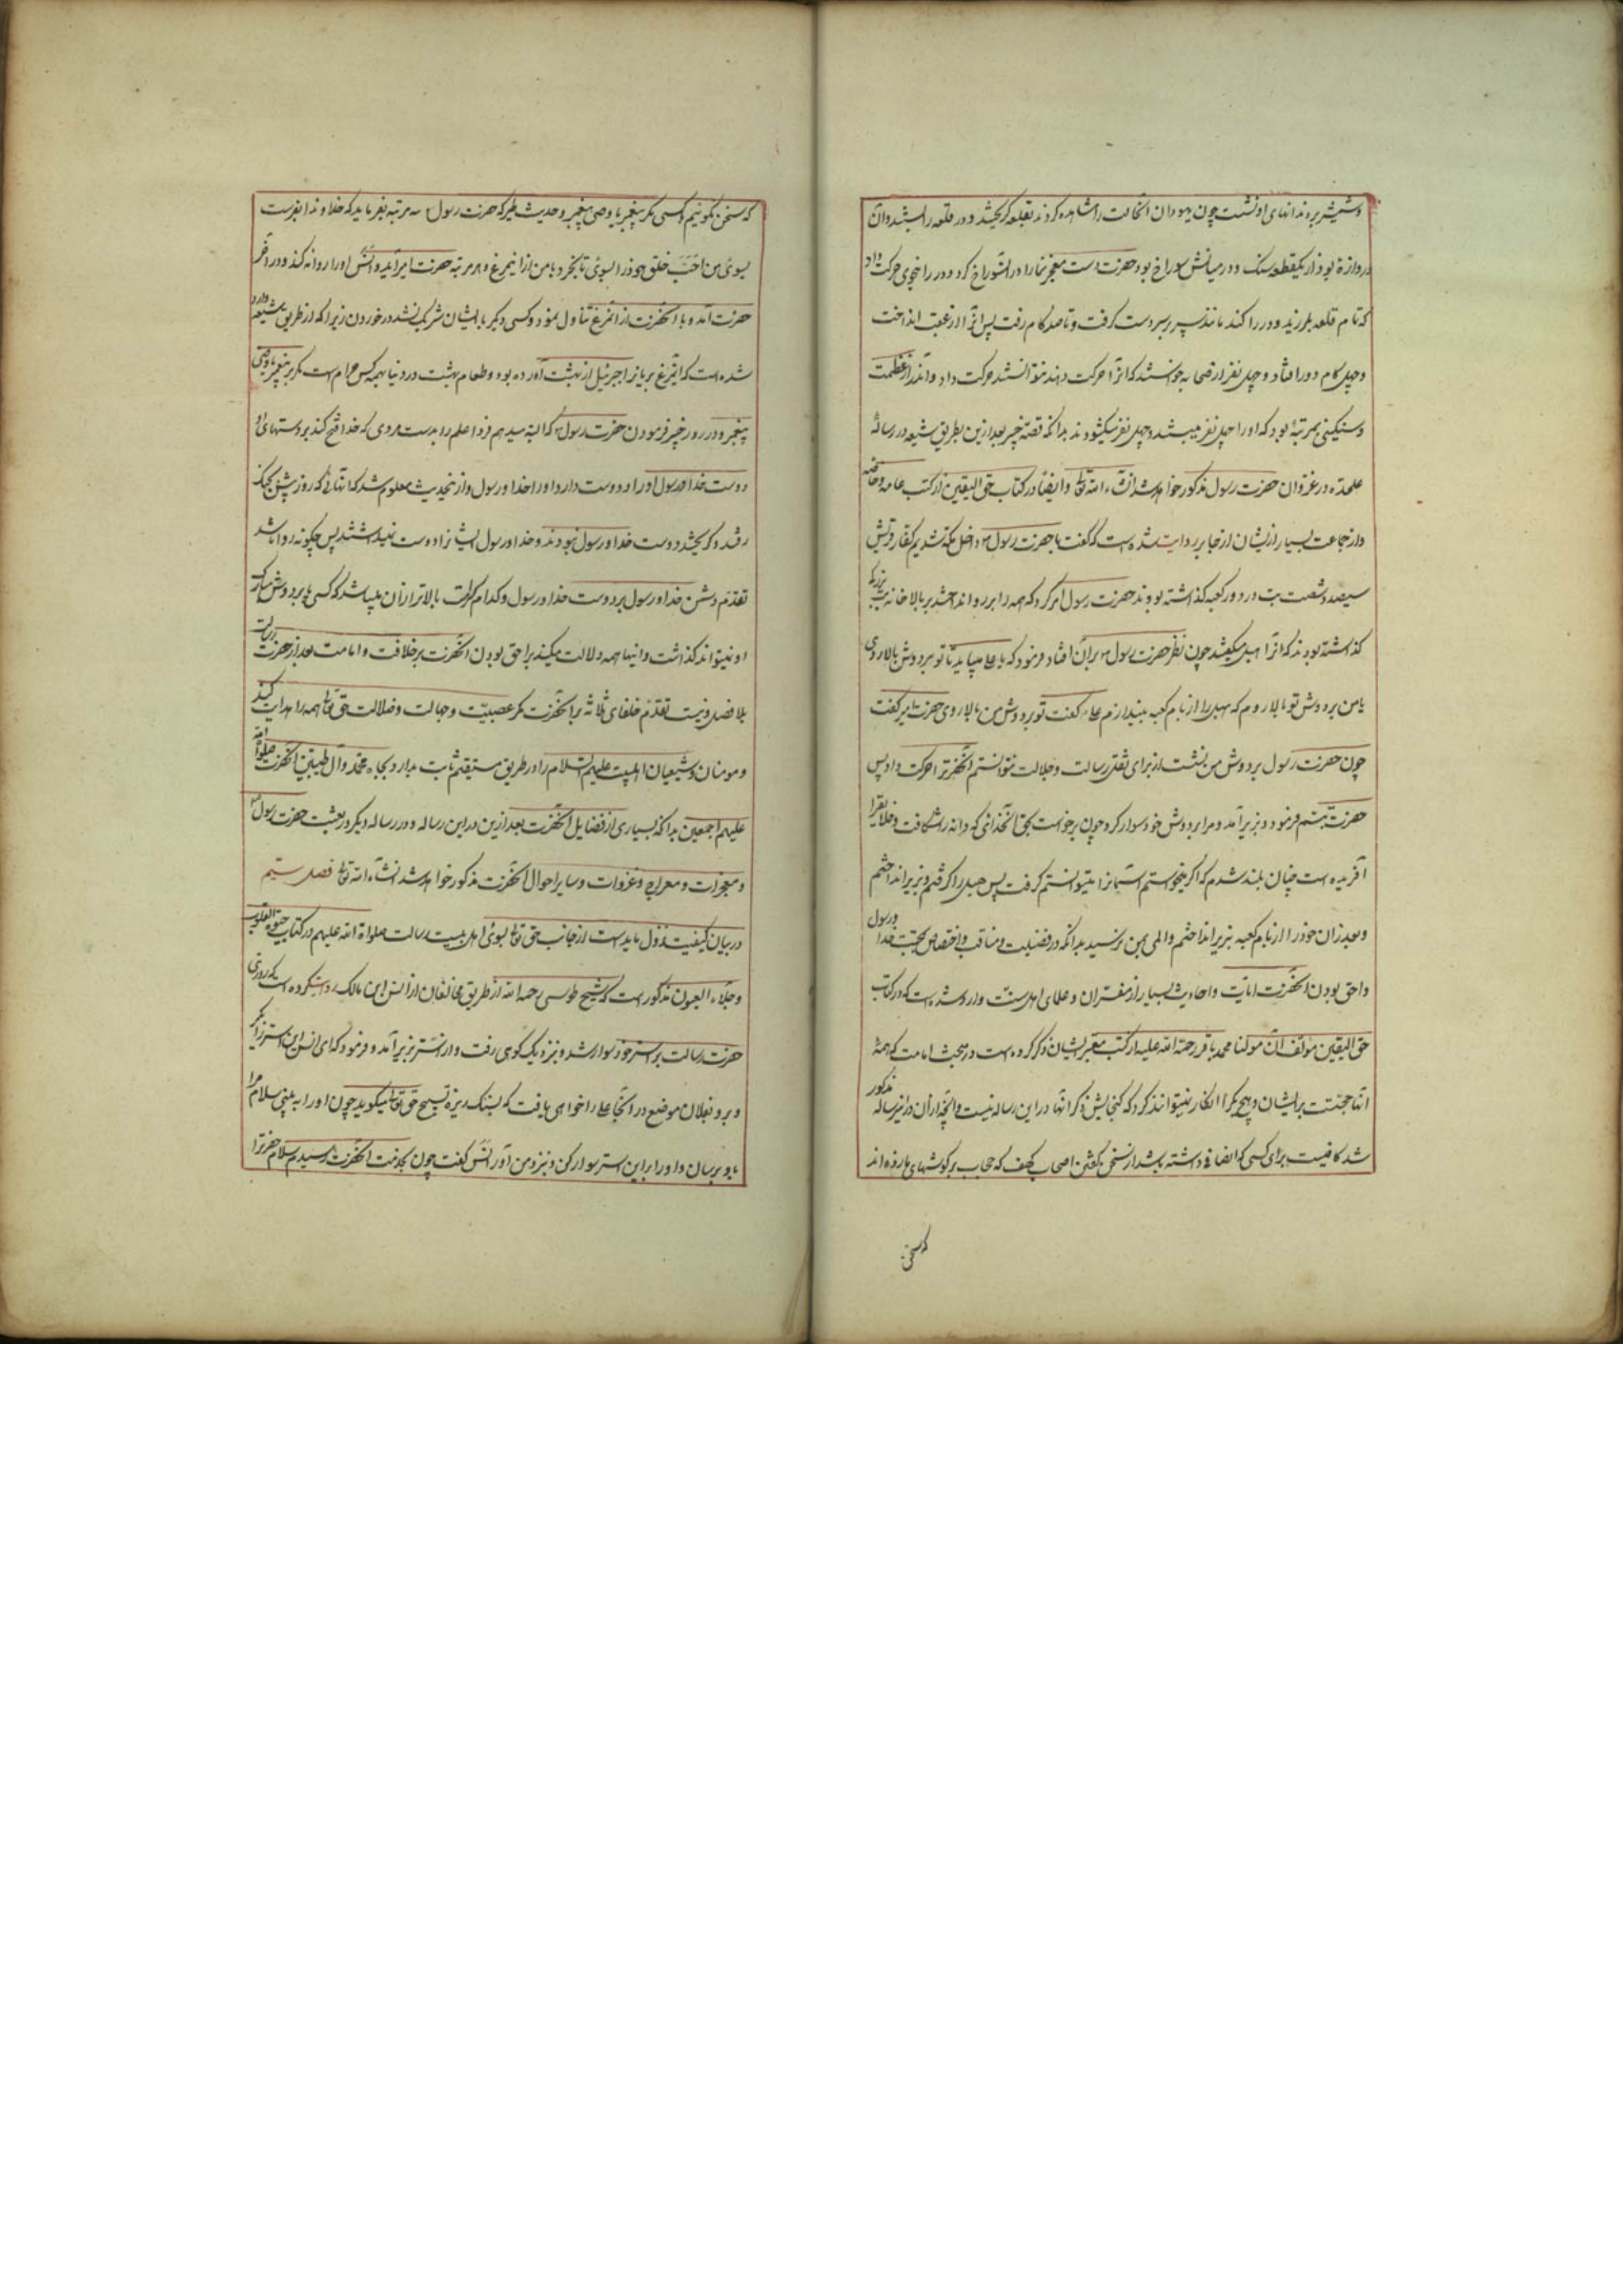 و شمشیر بر دندانهای او نشست چون یهودان انحالت را مشاهده کردند بقلعه کریختند و در قلعه را بستند و آن
دروازهٔ بود از یکقطعه سنک و در میانش سوراخ بود حضرت دست معجز نما را در انسوراخ کرد و در را بنحوی حرکت داد
که تمام قلعه بلرزید و در را کند مانند سپر بر سر دست کرفت و تا صد کام رفت پس انرا از عقب انداخت
و چهل کام دور افتاد و چهل نفر از صحابه خواستند که انرا حرکت دهند نتوانستند حرکت داد و آندر از عظمت
و سنکینی بمرتبهٔ بود که اورا چهل نفر میبستند و چهل نفر میکشودند بدانکه قصهٔ خیبر بعد ازین بطریق شیعه در رسالهٔ
علیحده در غزوات حضرت رسول مذکور خواهد شد انشاء الله تعالی و ایضا در کتاب حق الیقین از کتب عامه و خاصه
و از جماعت بسیار از ایشان از جابر روایت شده است که گفت با حضرت رسول داخل مکه شدیم کفار قریش
سیصد و شصت بت در دور کعبه کذاشته بودند حضرت رسول امر کرد که همه را بر رو انداختند بر بالا خانه بت بزرکی
کذاشته بودند که انرا هبل میکفتند چون نظر حضرت رسول بر آن افتاد فرمود که یا علی میباید تا تو بر دوش بالا روی
یا من بر دوش تو بالا روم که هبل را از بام کعبه بیندازم علی گفت تو بر دوش من بالا روی حضرت امیر کفت
چون حضرت رسول بر دوش من نشست از برای ثقل رسالت و جلالت نتوانستم آنحضرترا حرکت داد پس
حضرت تبسم فرمود و بزیر آمد و مرا بر دوش خود سوار کرد و چون برخواست بحق انخدائی که دانه را شکافت و خلایقرا
آفریده است چنان بلند شدم که اکر میخواستم آسمانرا میتوانستم کرفت پس هبل را کرفتم و بزیر انداختم
و بعد از ان خود را از بام کعبه بزیر انداختم و المی بمن نرسید بدانکه در فضیلت و مناقب و اختصاص بمحبت خدا و رسول
و احق بودن آنحضرت امامت و احادیث بسیار از مفسران و علمای اهل سنت وارد شده است که در کتاب
حق الیقین مولف آن مولنا محمد باقر رحمة الله علیه از کتب معتبر ایشان ذکر کرده است در مبحث امامت که همهٔ
آنها حجتست بر ایشان و هیچ یک را انکار نمیتوانند کرد که کنجایش ذکر انها در این رساله نیست و آنچه از آن در این رساله مذکور
شد کافیست برای کسی که انصافی داشته باشد از سخن گفتن اصحاب کهف که حجاب بر کوشهای ما زده اند
که سخن
که سخن نکوئیم با کسی مکر پیغمبر یا وصی پیغمبر و حدیث طیر که حضرت رسول سه مرتبه بفرماید که خداوندا بفرست
بسوی من احب خلق خود را بسوی تا بخورد با من از این مرغ و هر مرتبه حضرت امیر آید و انس اورا روانه کند و در آخر
حضرت آمد و با آنحضرت از انمرغ تناول نمود و کسی دیکر با ایشان شریک نشد در خوردن زیرا که از طریق شیعه وارد
شده است که اینمرغ بریانرا جبرئیل از بهشت آورده بود و طعام بهشت در دنیا بهمه کس حرام است مکر بر پیغمبر یا وصی
پیغمبر و در روز خیبر فرمودن حضرت رسول که البته میدهم فردا علم را بدست مردی که خدا فتح کند بر دستهای او
دوست خدا و رسول اورا و دوست دارد اورا خدا و رسول و از اینحدیث معلوم شد که انهائی که روز پیش بجنک
رفتند و کریختند دوست خدا و رسول نبودند و خدا و رسول ایشانرا دوست نمیداشتند پس چکونه روا باشد
تقدم دشمن خدا و رسول بر دوست خدا و رسول و کدام کرامت بالاتر از آن میباشد که کسی پا بر دوش مبارک
او نمیتواند کذاشت و اینها همه دلالت میکند بر احق بودن آنحضرت بر خلافت و امامت بعد از حضرت رسالت
بلا فصل و نیست تقدم خلفای ثلاثه بر انحضرت مکر عصبیت و جهالت و ضلالت حق تعالی همه را هدایت کند
و مومنان و شیعیان اهلبیت علیهم السلام را در طریق مستقیم ثابت بدارد بجاه محمد و آل طیبین آنحضرت صلوة الله
علیهم اجمعین بدانکه بسیاری از فضایل آنحضرت بعد ازین در این رساله و در رساله دیکر در بعثت حضرت رسول
و معجزات و معراج و غزوات و سایر احوال آنحضرت مذکور خواهد شد انشاء الله تعالی فصل بیستم
در بیان کیفیت نزول مایده است از جانب حق تعالی بسوی اهل بیت رسالت صلواة الله علیهم در کتاب حیوة القلوب
و جلاء العیون مذکور است که شیخ طوسی رحمه الله از طریق مخالفان از انس ابن مالک روایت کرده است که روزی
حضرت رسالت بر استر خود سوار شد و نزدیک کوهی رفت و از استر بزیر آمد و فرمود که ای انس این استر را بکیر
و برو بفلان موضع در انجا علی را خواهی یافت که بسنک ریزه تسبیح حق تعالی میکوید چون اورا به بینی سلام مرا
باو برسان و اورا بر این استر سوار کن و بنزد من آور انس کفت چون بخدمت آنحضرت رسیدم سلام حضرترا